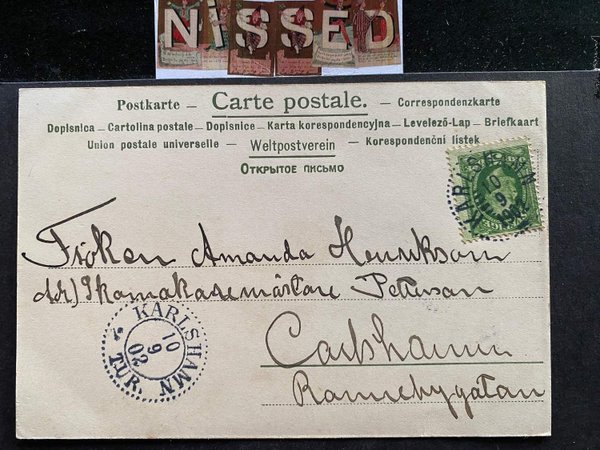 NISSED
Postkarte – Carte postale. – Correspondenzkarte
Dopisnica – Cartolina postale – Dopisnice – Karta korespondencyjna – Levelező-Lap – Briefkaart
Union postale universelle – Weltpostverein – Korespondenční listek
Открытое письмо
KARLSHAMN
10
9
Fröken Amanda Henrikson
Skomakaremästare Petterson
Carlshamn
Ronnebygatan
KARLSHAMN
10
9
02
TUR.